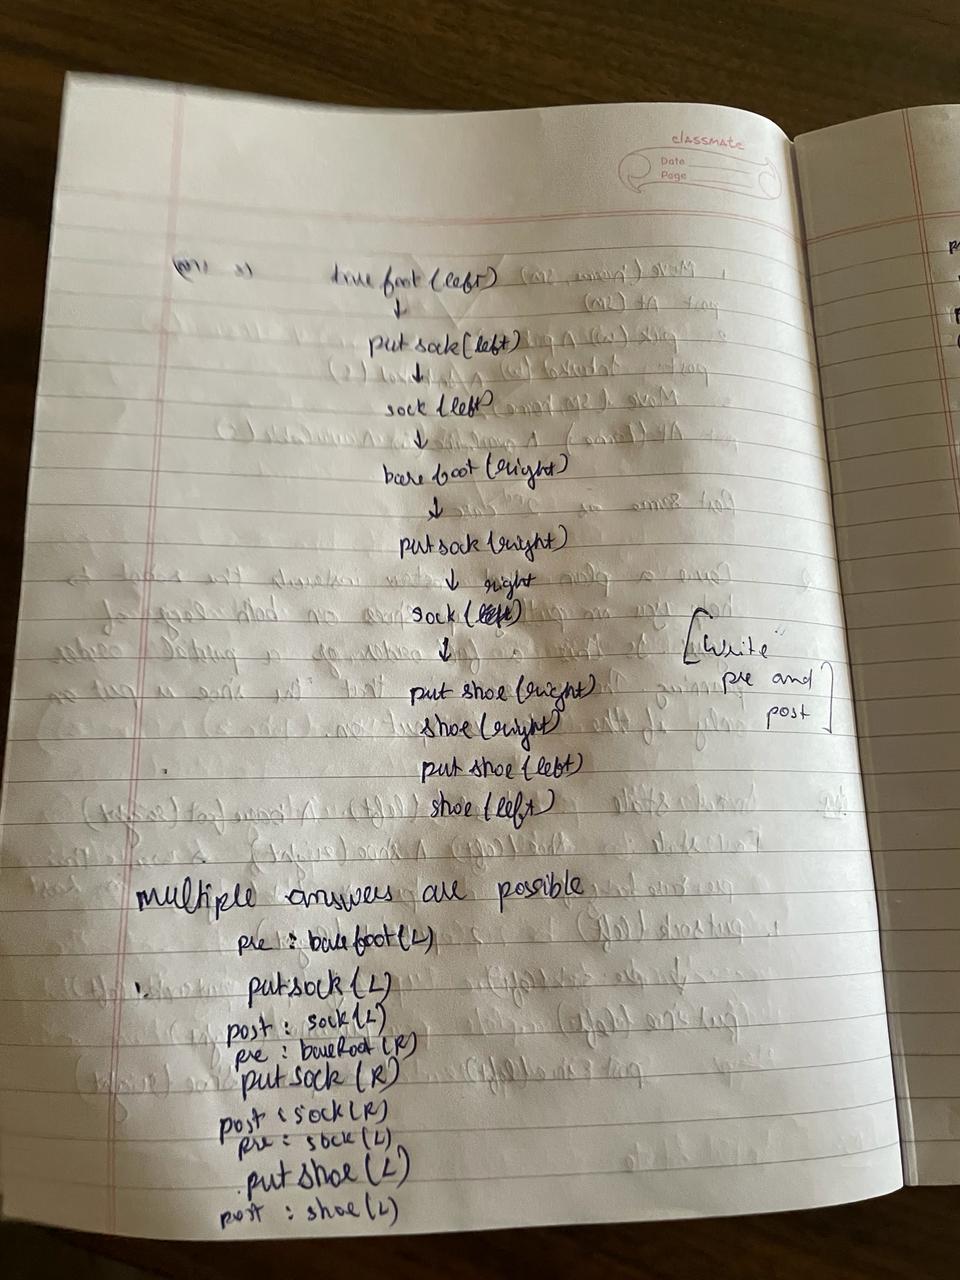 classmate
Date
Page
foot (left)
↓
put sock (left)
↓
sock (left)
↓
bare foot (right)
↓
put sock (right)
↓ right
sock (left)
↓
[Write
pre and
post]
put shoe (right)
shoe (right)
put shoe (left)
shoe (left)
multiple answers are possible
pre : barefoot (L)
1. put sock (L)
post : sock (L)
pre : barefoot (R)
put sock (R)
post : sock (R)
pre : sock (L)
put shoe (L)
post : shoe (L)